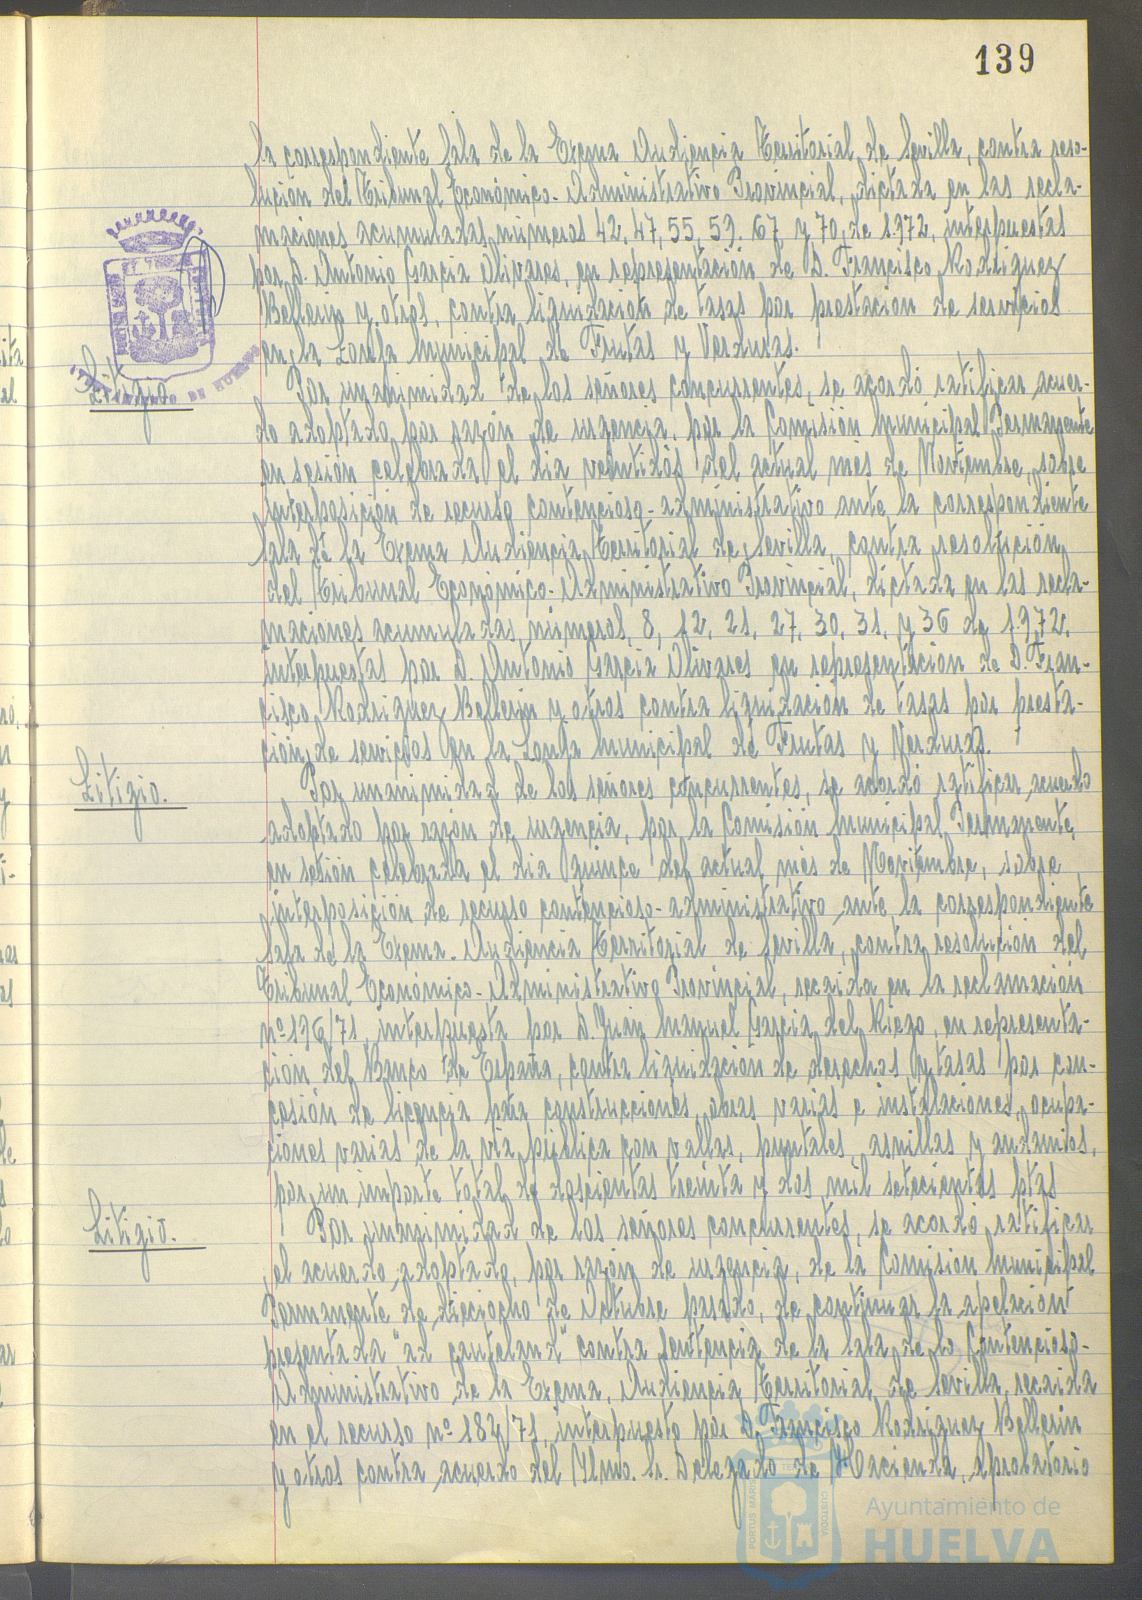 139
la correspondiente Sala de la Excma Audiencia Territorial de Sevilla, contra reso-
lución del Tribunal Económico-Administrativo Provincial, dictada en las recla-
maciones acumuladas números 42, 47, 55, 59, 67 y 70, de 1972, interpuestas
por D. Antonio García Olivares, en representación de D. Francisco Rodriguez
Bellerin y otros, contra liquidación de tasas por prestación de servicios
en la Lonja Municipal de Frutas y Verduras.
Litigio
Por unanimidad de los señores concurrentes, se acordó ratificar acuer-
do adoptado por razón de urgencia, por la Comisión Municipal Permanente
en sesión celebrada el dia veintidós del actual mes de Noviembre, sobre
interposición de recurso contencioso-administrativo ante la correspondiente
Sala de la Excma Audiencia Territorial de Sevilla, contra resolución
del Tribunal Económico-Administrativo Provincial, dictada en las recla-
maciones acumuladas números, 8, 12, 21, 27, 30, 31, y 36 de 1972,
interpuestas por D. Antonio García Olivares en representación de D. Fran-
cisco Rodriguez Bellerin y otros contra liquidación de tasas por presta-
ción de servicios en la Lonja Municipal de Frutas y Verduras.
Litigio.
Por unanimidad de los señores concurrentes, se acordó ratificar acuerdo
adoptado por razón de urgencia, por la Comisión Municipal Permanente,
en sesión celebrada el dia quince del actual mes de Noviembre, sobre
interposición de recurso contencioso-administrativo ante la correspondiente
Sala de la Excma. Audiencia Territorial de Sevilla, contra resolución del
Tribunal Económico-Administrativo Provincial, recaida en la reclamación
nº 196/71, interpuesta por D. Juan Manuel García del Riego, en representa-
ción del Banco de España, contra liquidación de derechos y tasas por con-
cesión de licencia para construcciones, obras varias e instalaciones, ocupa-
ciones varias de la vía pública con vallas, puntales, asnillas y andamios,
por un importe total de doscientas treinta y dos mil setecientas ptas
Litigio.
Por unanimidad de los señores concurrentes, se acordó ratificar
el acuerdo adoptado, por razón de urgencia, de la Comisión Municipal
Permanente de dieciocho de Octubre pasado, de continuar la apelación
presentada "ad cautelam" contra Sentencia de la Sala de lo Contencioso-
Administrativo de la Excma. Audiencia Territorial de Sevilla, recaida
en el recurso nº 182/71 interpuesto por D. Francisco Rodriguez Bellerin
y otros contra acuerdo del Ilmo. Sr. Delegado de Hacienda, aprobatorio
Ayuntamiento de
HUELVA